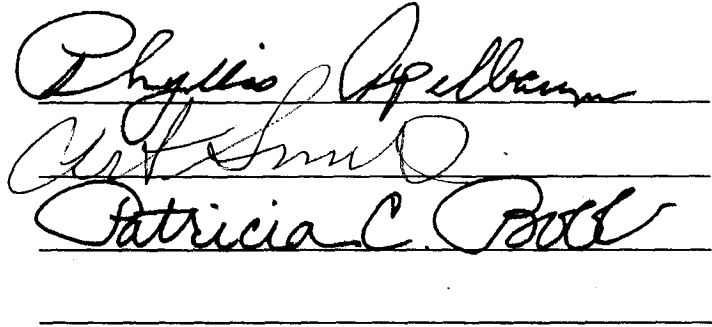 Phyllis Apelbaum
Art Smith
Patricia C. Bobb